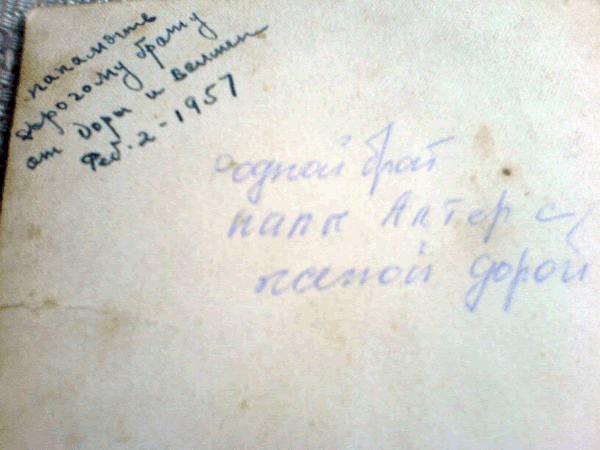 на память
дорогому брату
от Доры и Велмен
Феб. 2 - 1957
родной брат
папк Актер с
женой Дорой